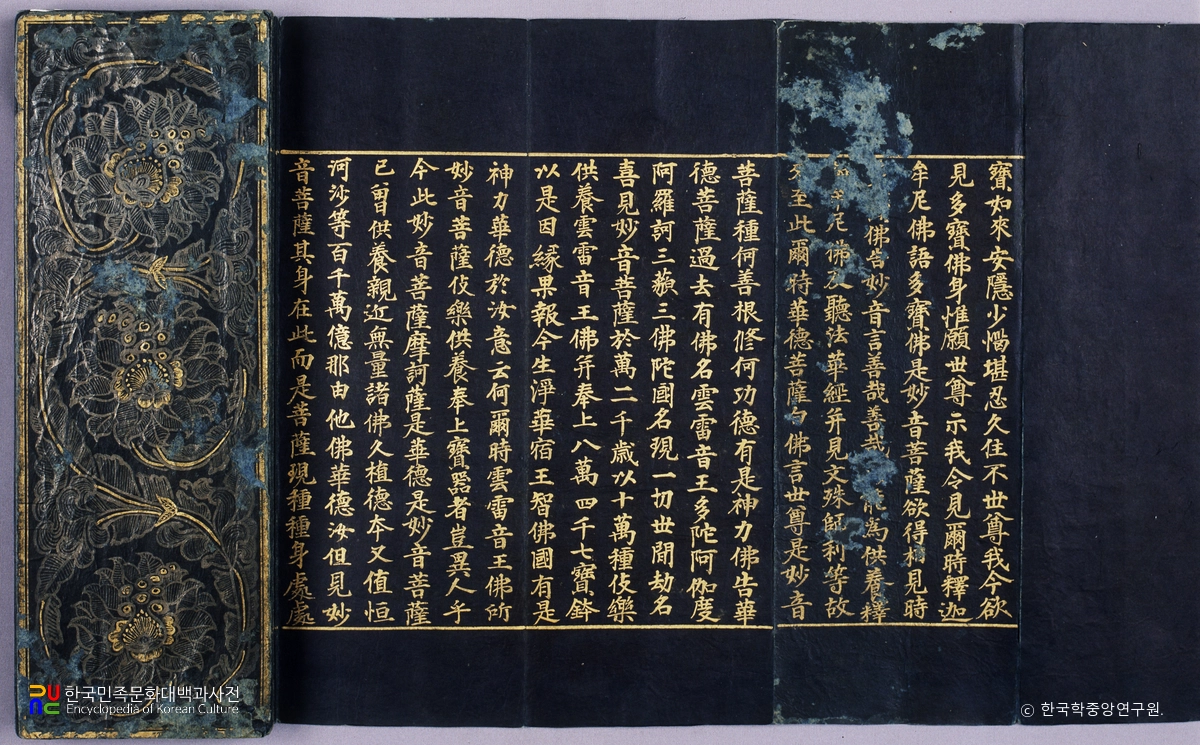 寶如來安隱少惱堪忍久住不世尊我今欲
見多寶佛身惟願世尊示我令見爾時釋迦
牟尼佛語多寶佛是妙音菩薩欲得相見時
佛告妙音言善哉善哉能爲供養釋
牟尼佛及聽法華經并見文殊師利等故
至此爾時華德菩薩白佛言世尊是妙音
菩薩種何善根修何功德有是神力佛告華
德菩薩過去有佛名雲雷音王多陀阿伽度
阿羅訶三藐三佛陀國名現一切世間劫名
喜見妙音菩薩於萬二千歲以十萬種伎樂
供養雲雷音王佛并奉上八萬四千七寶鉢
以是因緣果報今生淨華宿王智佛國有是
神力華德於汝意云何爾時雲雷音王佛所
妙音菩薩伎樂供養奉上寶器者豈異人乎
今此妙音菩薩摩訶薩是華德是妙音菩薩
已曾供養親近無量諸佛久植德本又值恒
河沙等百千萬億那由他佛華德汝但見妙
音菩薩其身在此而是菩薩現種種身處處
한국민족문화대백과사전
Encyclopedia of Korean Culture
ⓒ 한국학중앙연구원.